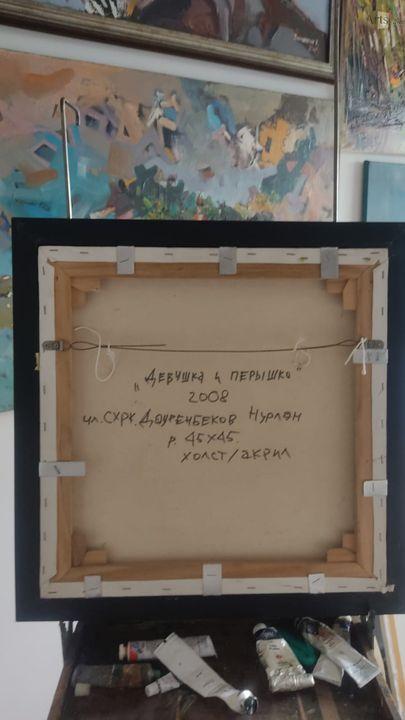 Arts
„ДЕВУШКА и ПЕРЫШКО"
2008
чл. СХРК. ДАУРЕНБЕКОВ НУРЛАН
р. 45х45.
ХОЛСТ/АКРИЛ